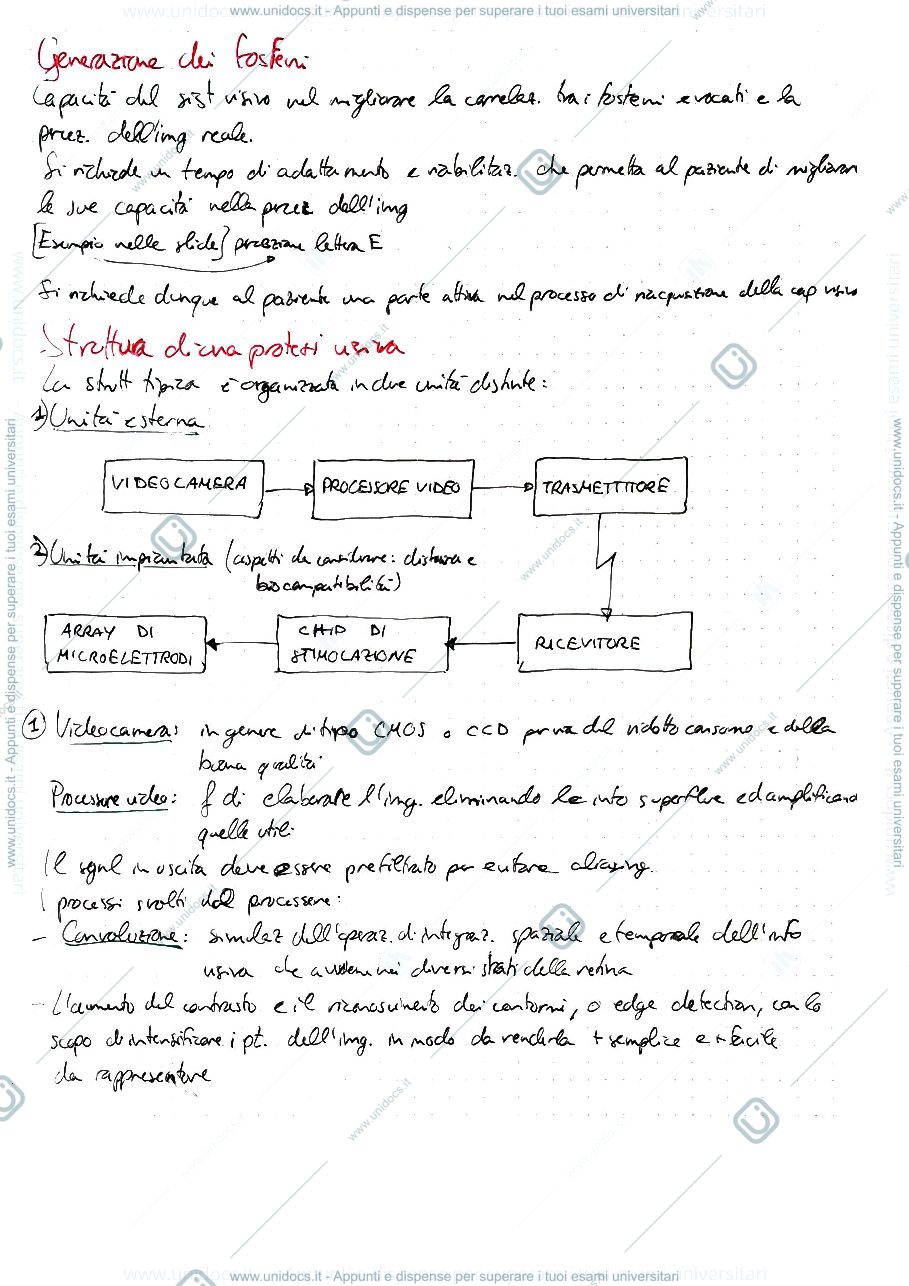 www.unidocs.it - Appunti e dispense per superare i tuoi esami universitari
Generazione dei fosfeni
Capacità del sist visivo nel migliorare la correlaz. tra i fosfeni evocati e la
percez. dell'img reale.
Si richiede un tempo di adattamento e riabilitaz. che permetta al paziente di migliorare
le sue capacità nella percez dell'img
[Esempio nelle slide] percezione lettera E
Si richiede dunque al paziente una parte attiva nel processo di riacquisizione della cap visiva
Struttura di una protesi visiva
La strutt tipica è organizzata in due unità distinte:
1) Unità esterna
VIDEOCAMERA PROCESSORE VIDEO TRASMETTITORE
2) Unità impiantata (aspetti da considerare: distanza e
biocompatibilità)
ARRAY DI CHIP DI RICEVITORE
MICROELETTRODI STIMOLAZIONE
1 Videocamera: in genere di tipo CMOS o CCD per via del ridotto consumo e della
buona qualità
Processore video: f di elaborare l'img. eliminando le info superflue ed amplificando
quelle utili
Il segnl in uscita deve essere prefiltrato per evitare aliasing.
I processi svolti dal processore:
- Convoluzione: simulaz dell'operaz. di integraz. spaziale e temporale dell'info
visiva che avviene nei diversi strati della retina
- L'aumento del contrasto e il riconoscimento dei contorni, o edge detection, con lo
scopo di intensificare i pt. dell'img. in modo da renderla + semplice e + facile
da rappresentare
www.unidocs.it - Appunti e dispense per superare i tuoi esami universitari